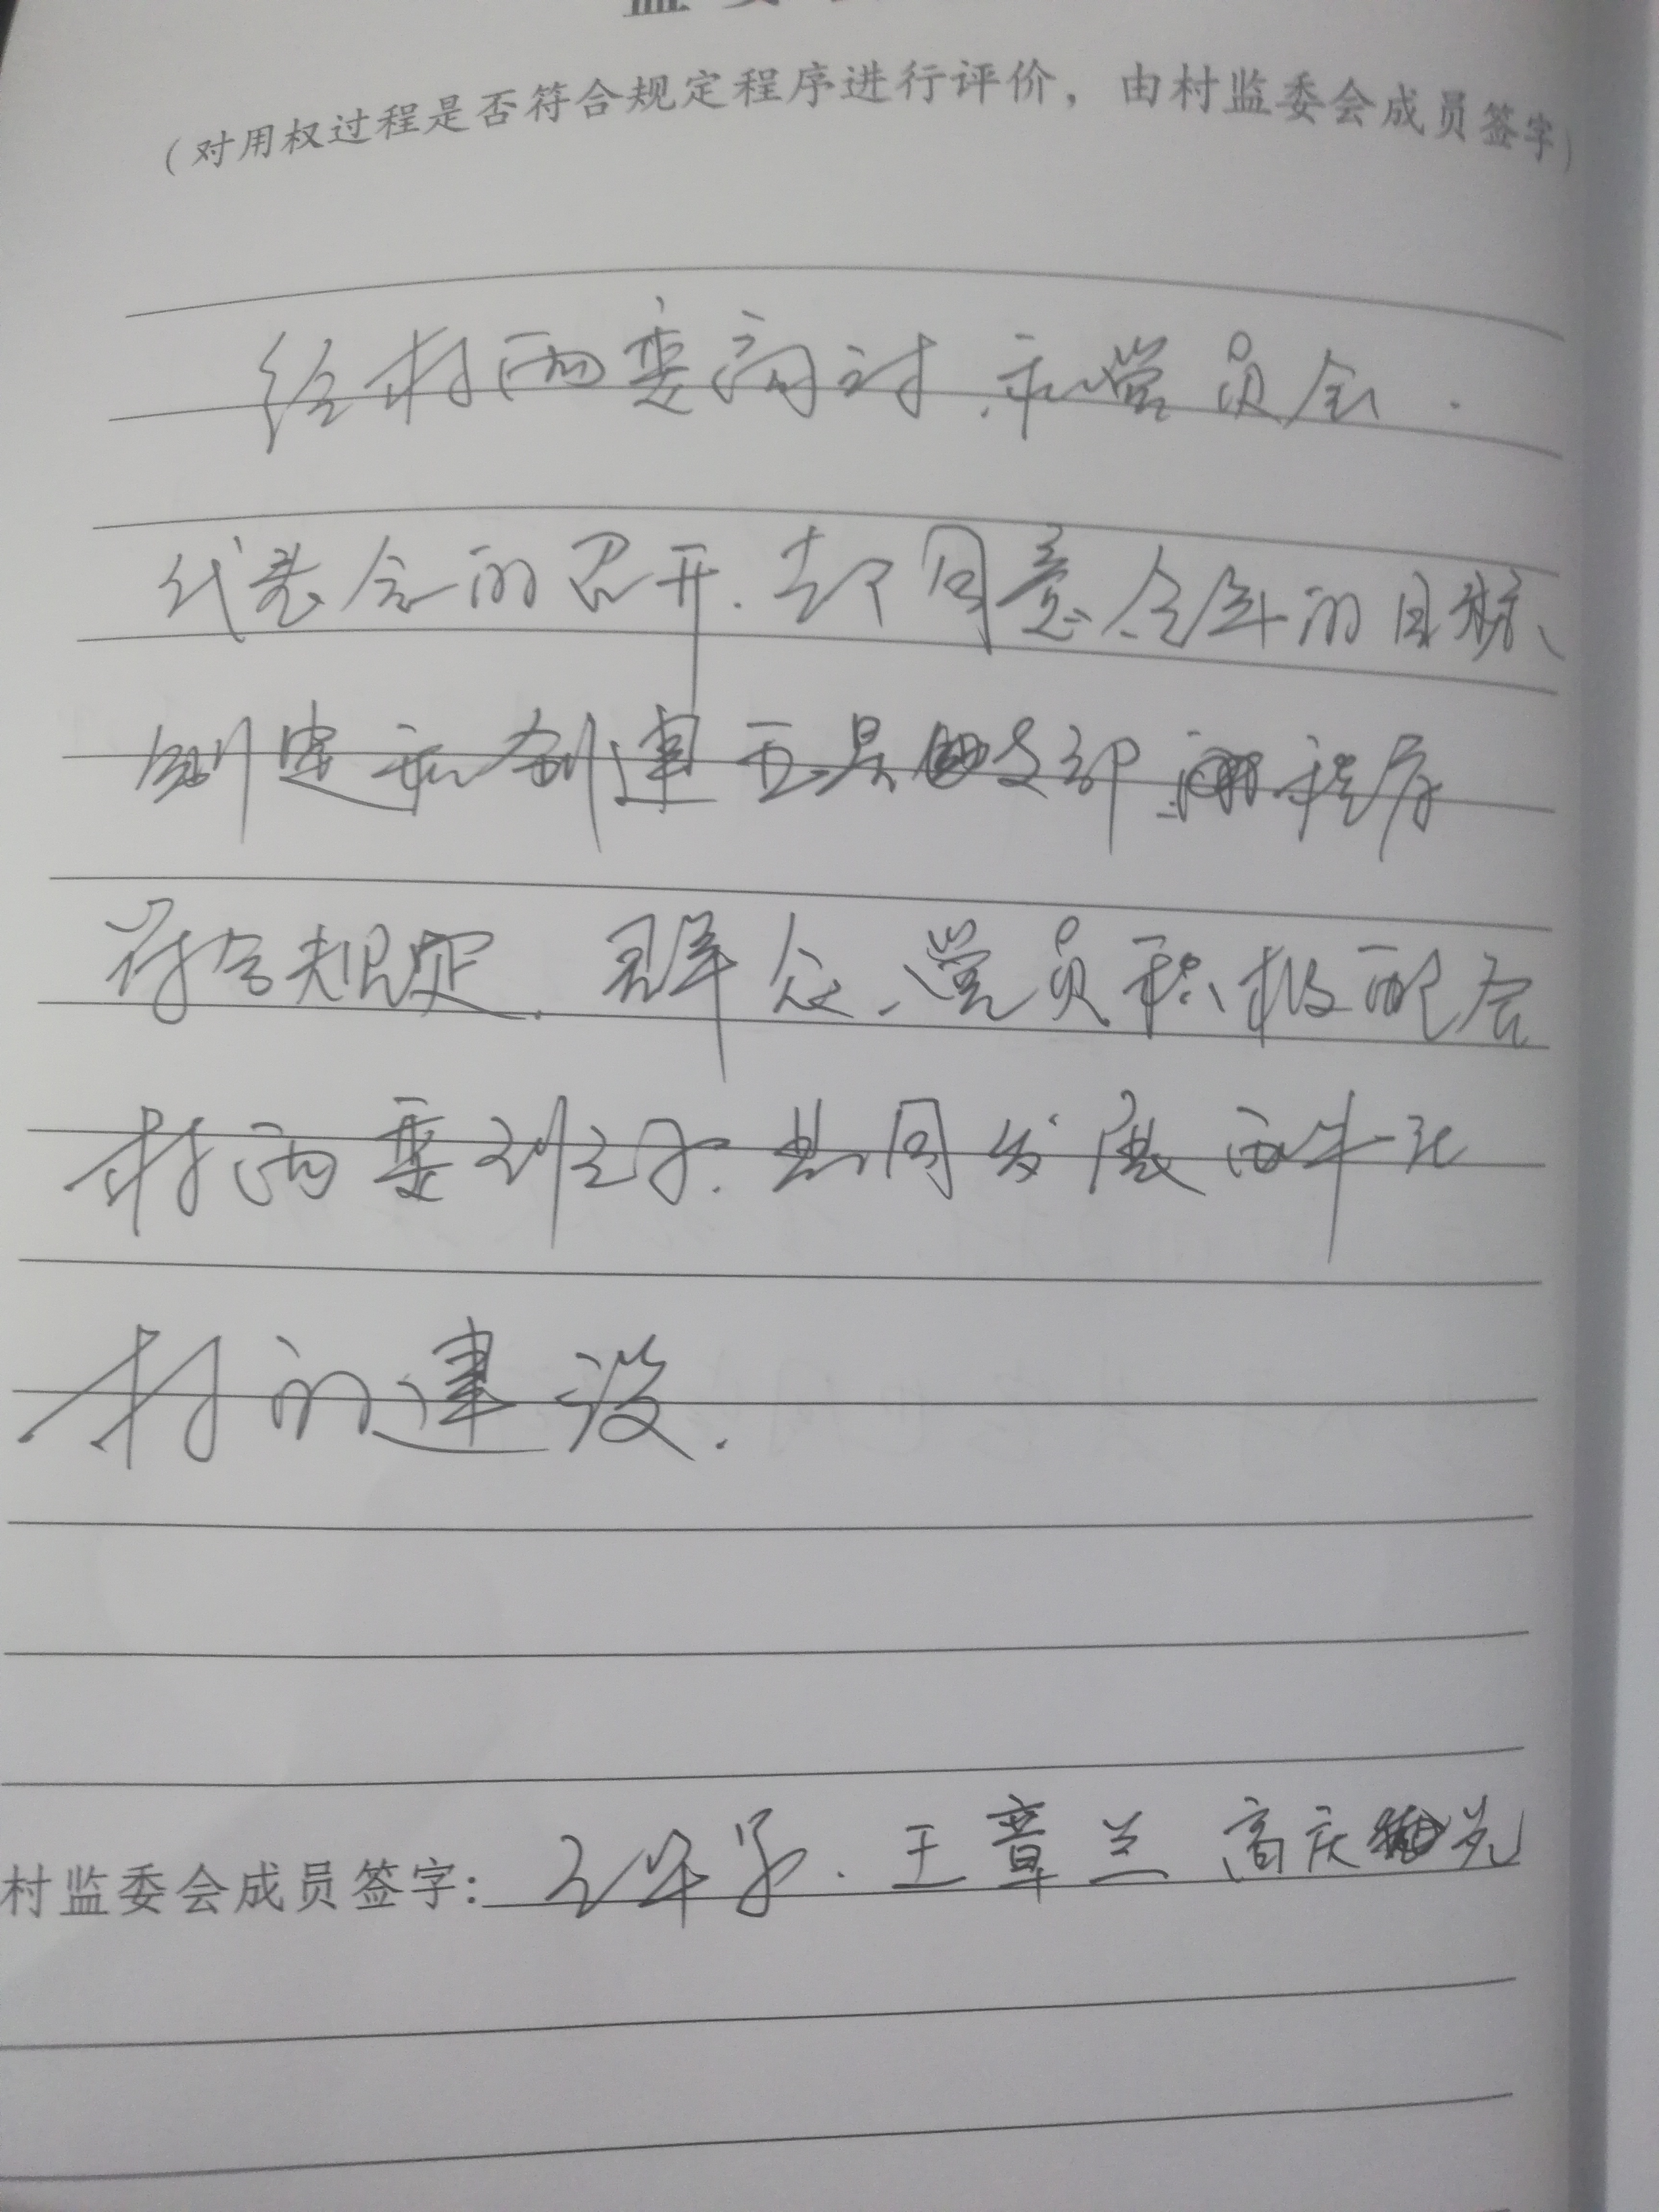 （对用权过程是否符合规定程序进行评价，由村监委会成员签字）
经村两委商讨、和党员会.
代表会的召开.都同意今年的目标、
创建和创建五星支部、程序
符合规定.群众、党员积极配合
村两委班子.共同发展西牛
村的建设.
村监委会成员签字： 王章兰 高庆